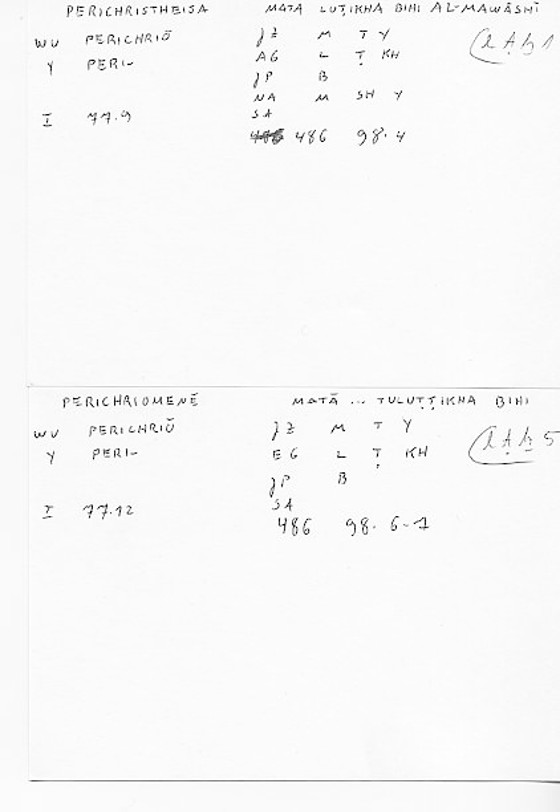 PERICHRISTHEISA MATĀ LUṬIKHA BIHI AL-MAWĀSHĪ
WU PERICHRIŌ JZ M T Y
Y PERI- AG L Ṭ KH
JP B
NA M SH Y
I 77.9 SA
486 98.4
PERICHRIOMENĒ MATĀ ... TULUṬṬIKHA BIHI
WU PERICHRIŌ JZ M T Y
Y PERI- EG L Ṭ KH
JP B
I 77.12 SA
486 98.6-7